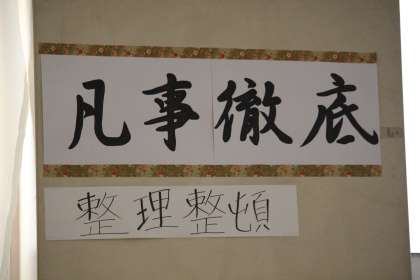 凡事徹底
整理整頓